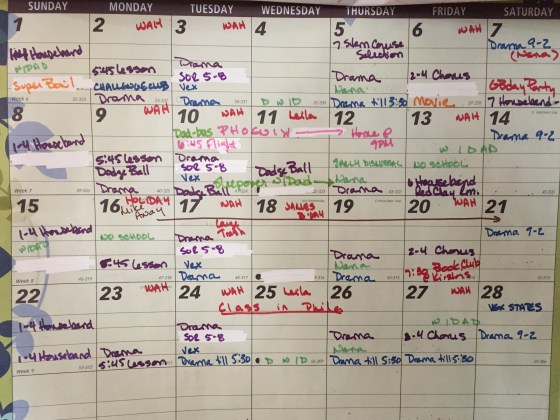 SUNDAY MONDAY TUESDAY WEDNESDAY THURSDAY FRIDAY SATURDAY
1
1-4 Houseband
W/DAD
Super Bowl
Week 6
2 WAH
5:45 Lesson
CHALLENGE CLUB
Drama
3 WAH
Drama
SOR 5-8
Vex
Drama
4
D W/D
5 WAH
7 Slam Course
Selection
Drama
Nana
Drama till 5:30
6 WAH
2-4 Chorus
Movie
7
Drama 9-2
(Nana)
Bday Party
7 Houseband
8
1-4 Houseband
Week 7
9 WAH
5:45 Lesson
DodgeBall
Drama
10 WAH
Dad-bus PHOENIX
6:45 Flight
Drama
SOR 5-8
Vex
DodgeBall
11 Leila
DodgeBall
Sleepover w/Dad
12 Home @
9PM
EARLY DISMISSAL
Nana
Drama
13 WAH
W/DAD
NO SCHOOL
6 Houseband
14
Drama 9-2
15
1-4 Houseband
W/DAD
Week 8
16 HOLIDAY
Mike
Away
NO SCHOOL
5:45 Lesson
17 WAH
Drama
SOR 5-8
Vex
Drama
18 JAMES
B'DAY
19
Drama
Nana
Drama
20 WAH
2-4 Chorus
7:30 Book Club
@ Kirstins
21
Drama 9-2
22
1-4 Houseband
1-4 Houseband
Week 9
23 WAH
Drama
5:45 Lesson
24 WAH
Drama
SOR 5-8
Vex
Drama till 5:30
25 Leila
Class in Phila
D W/D
26
Drama
Nana
Drama till 5:30
27 WAH
W/DAD
2-4 Chorus
Drama till 5:30
28
VEX STATES
Drama 9-2